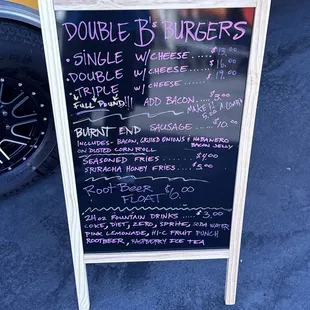 DOUBLE B's BURGERS
• SINGLE W/CHEESE... $12.00
• DOUBLE W/CHEESE... $16.00
• TRIPLE W/CHEESE... $19.00
FULL POUND!!! ADD BACON... $3.00
MAKE IT A
5.00
BURNT END SAUSAGE ... $10.00
INCLUDES- BACON, GRILLED ONIONS & HABANERO
ON DUSTED CORN ROLL BACON JELLY
SEASONED FRIES ..... $4.00
SRIRACHA HONEY FRIES... $5.00
ROOT BEER $6.00
FLOAT
24oz FOUNTAIN DRINKS .... $3.00
COKE, DIET, ZERO, SPRITE, SODA WATER
PINK LEMONADE, HI-C FRUIT PUNCH
ROOTBEER, RASPBERRY ICE TEA